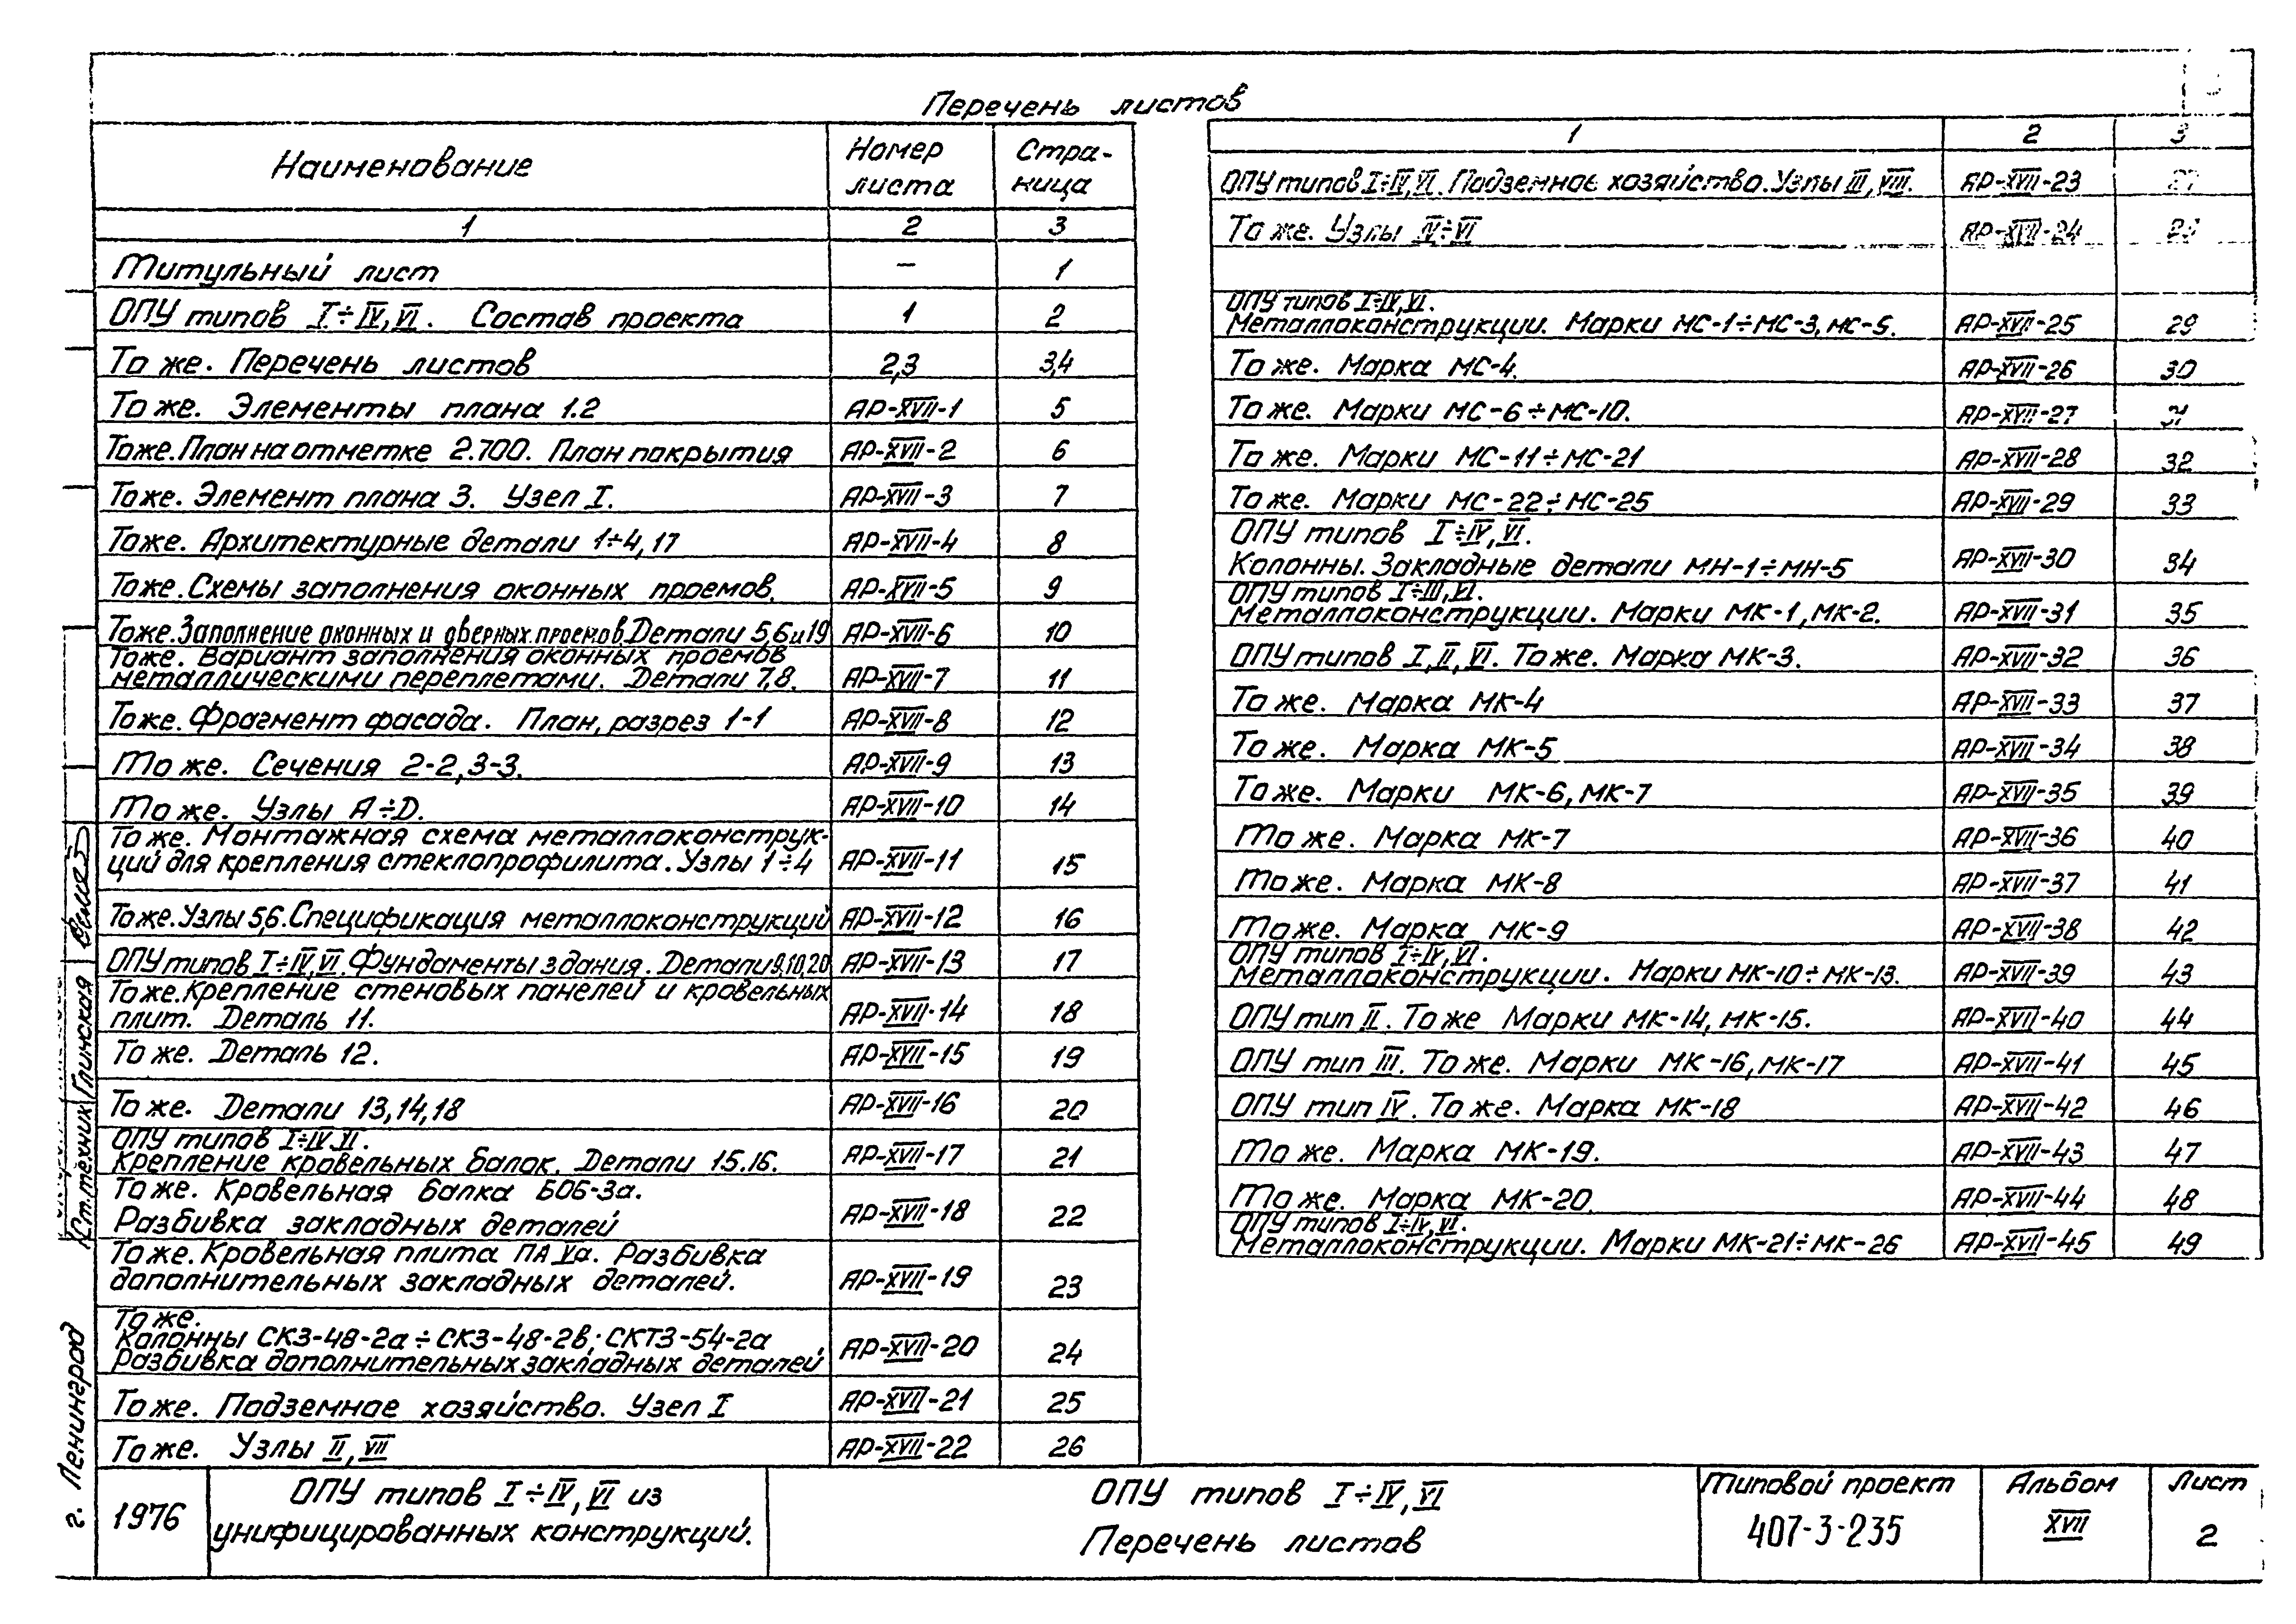 Перечень листов
Наименование Номер листа Стра-ница
1 2 3
Титульный лист — 1
ОПУ типов I÷IV, VI. Состав проекта 1 2
То же. Перечень листов 2,3 3,4
То же. Элементы плана 1.2 АР-XVII-1 5
То же. План на отметке 2.700. План покрытия АР-XVII-2 6
То же. Элемент плана 3. Узел I. АР-XVII-3 7
То же. Архитектурные детали 1÷4, 17 АР-XVII-4 8
То же. Схемы заполнения оконных проемов. АР-XVII-5 9
То же. Заполнение оконных и дверных проемов. Детали 5,6 и 19 АР-XVII-6 10
То же. Вариант заполнения оконных проемов
металлическими переплетами. Детали 7,8. АР-XVII-7 11
То же. Фрагмент фасада. План, разрез 1-1 АР-XVII-8 12
То же. Сечения 2-2, 3-3. АР-XVII-9 13
То же. Узлы А÷D. АР-XVII-10 14
То же. Монтажная схема металлоконструк-
ций для крепления стеклопрофилита. Узлы 1÷4 АР-XVII-11 15
То же. Узлы 5,6. Спецификация металлоконструкций АР-XVII-12 16
ОПУ типов I÷IV, VI. Фундаменты здания. Детали 9,10,20 АР-XVII-13 17
То же. Крепление стеновых панелей и кровельных
плит. Деталь 11. АР-XVII-14 18
То же. Деталь 12. АР-XVII-15 19
То же. Детали 13,14,18 АР-XVII-16 20
ОПУ типов I÷IV, VI.
Крепление кровельных балок. Детали 15.16. АР-XVII-17 21
То же. Кровельная балка Б06-3а.
Разбивка закладных деталей АР-XVII-18 22
То же. Кровельная плита ПА Vа. Разбивка
дополнительных закладных деталей. АР-XVII-19 23
То же.
Колонны СК3-48-2а÷СК3-48-2в; СКТ3-54-2а
Разбивка дополнительных закладных деталей АР-XVII-20 24
То же. Подземное хозяйство. Узел I АР-XVII-21 25
То же. Узлы II, VII АР-XVII-22 26
1 2 3
ОПУ типов I÷IV, VI. Подземное хозяйство. Узлы III, VIII. АР-XVII-23 27
То же. Узлы IV÷VI АР-XVII-24
ОПУ типов I÷IV, VI.
Металлоконструкции. Марки МС-1÷МС-3, МС-5. АР-XVII-25 29
То же. Марка МС-4. АР-XVII-26 30
То же. Марки МС-6÷МС-10. АР-XVII-27 31
То же. Марки МС-11÷МС-21 АР-XVII-28 32
То же. Марки МС-22÷МС-25 АР-XVII-29 33
ОПУ типов I÷IV, VI.
Колонны. Закладные детали МН-1÷МН-5 АР-XVII-30 34
ОПУ типов I÷III, VI.
Металлоконструкции. Марки МК-1, МК-2. АР-XVII-31 35
ОПУ типов I, II, VI. То же. Марка МК-3. АР-XVII-32 36
То же. Марка МК-4 АР-XVII-33 37
То же. Марка МК-5 АР-XVII-34 38
То же. Марки МК-6, МК-7 АР-XVII-35 39
То же. Марка МК-7 АР-XVII-36 40
То же. Марка МК-8 АР-XVII-37 41
То же. Марка МК-9 АР-XVII-38 42
ОПУ типов I÷IV, VI.
Металлоконструкции. Марки МК-10÷МК-13. АР-XVII-39 43
ОПУ тип II. То же Марки МК-14, МК-15. АР-XVII-40 44
ОПУ тип III. То же. Марки МК-16, МК-17 АР-XVII-41 45
ОПУ тип IV. То же. Марка МК-18 АР-XVII-42 46
То же. Марка МК-19. АР-XVII-43 47
То же. Марка МК-20. АР-XVII-44 48
ОПУ типов I÷IV, VI.
Металлоконструкции. Марки МК-21÷МК-26 АР-XVII-45 49
Ст. техник Глинская
г. Ленинград
1976
ОПУ типов I÷IV, VI из
унифицированных конструкций.
ОПУ типов I÷IV, VI
Перечень листов
Типовой проект
407-3-235
Альбом
XVII
Лист
2